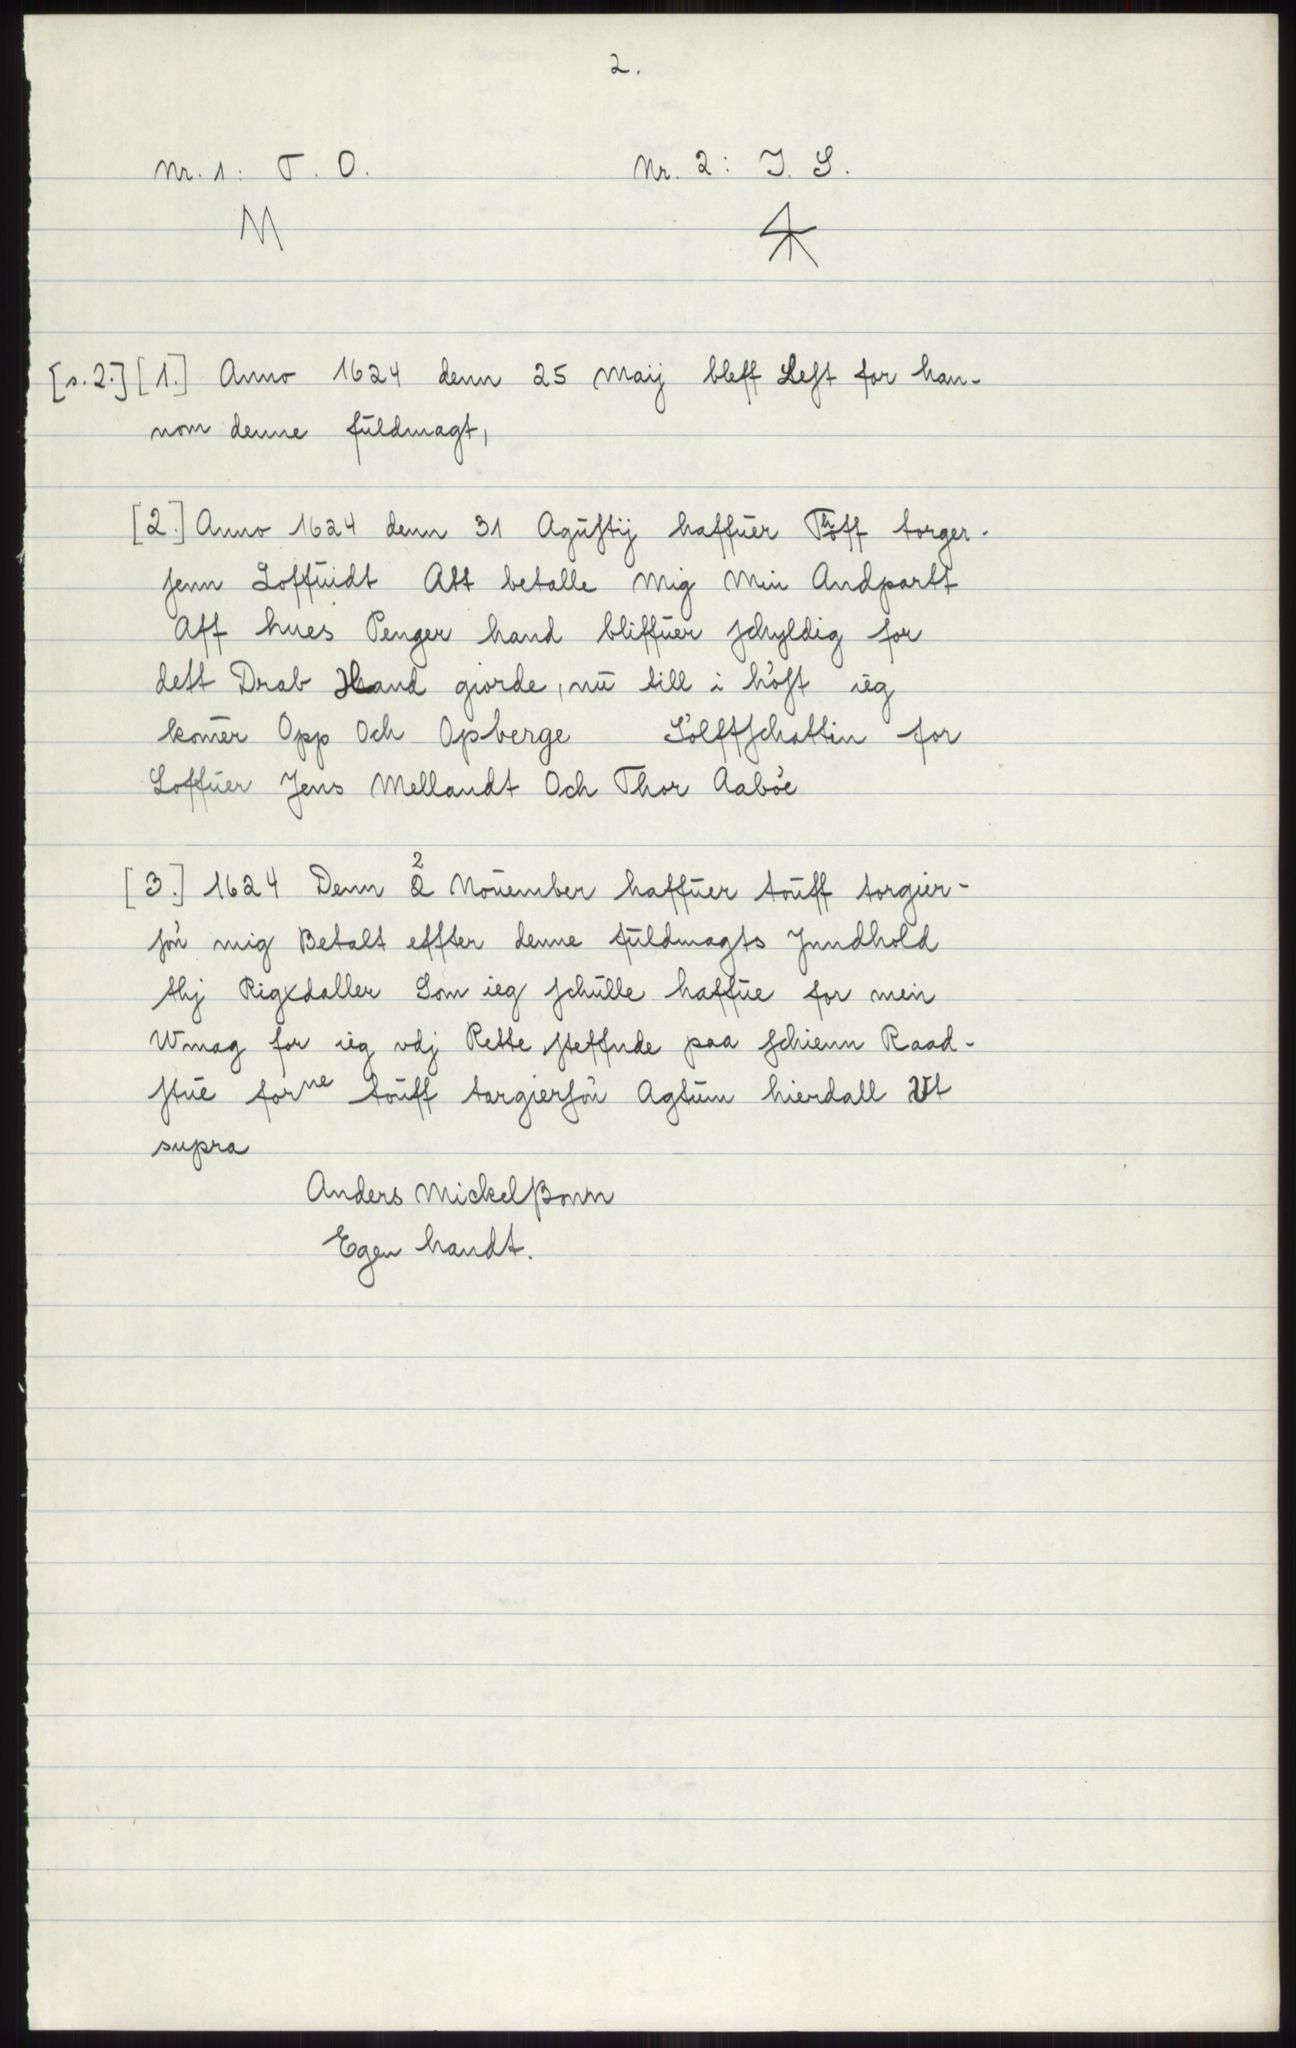 2.
Nr. 1: T. O. Nr. 2: J. S.
[s. 2.] [1.] Anno 1624 denn 25 Maij bleff Lest for han-
nom denne fuldmagt,
[2.] Anno 1624 denn 31 Agustij haffuer Töff torger-
senn Loffuidt Att betalle Mig Min Andpartt
Aff hues Penger hand bliffuer schyldig for
dett Drab Hand giorde, nu till i höst ieg
komer Opp Och Opberge Sölffschattin for
Loffuer Jens Mellandt Och Thor Aaböe
[3.] 1624 Denn 2 Nouember haffuer touff torgier-
sön mig Betalt effter denne fuldmagts Jnndhold
thj Rigxdaller Som ieg schulle haffue for mein
Wmag for ieg vdj Rette steffnde paa schienn Raad-
stue forne touff targiersön Agtum hierdall Ut
supra
Anders Mickelßonn
Egen handt.